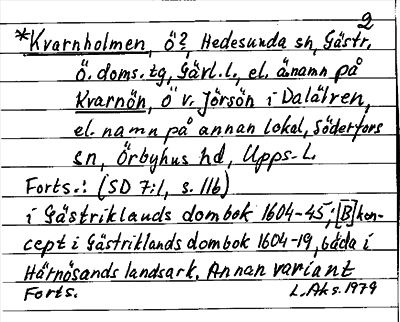 2
*Kvarnholmen, ö?, Hedesunda sn, Gästr.
ö. doms. tg, Gävl. l., el. ä. namn på
Kvarnön, ö v. Jörsön i Dalälven,
el. namn på annan lokal, Söderfors
sn, Örbyhus hd, Upps. L.
Forts.: (SD 7:1, s. 11b)
i Gästriklands dombok 1604-45; [B] kon-
cept i Gästriklands dombok 1604-19, båda i
Härnösands landsark. Annan variant
Forts. L. Aks. 1979